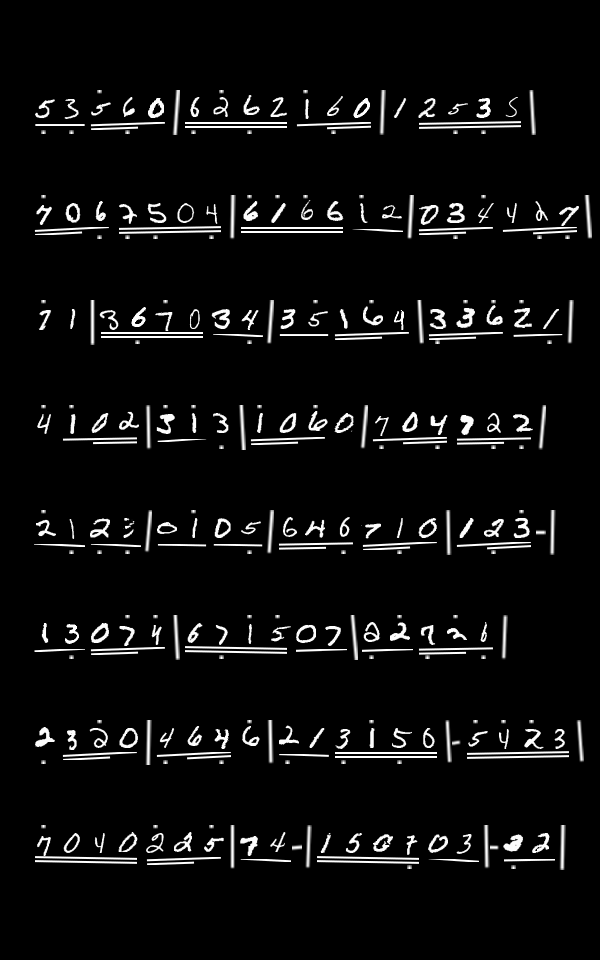 53 560|6262 160|1 2535|
7067504|6166 12|034 427|
71|3670 34|35 164|336 21|
4 102|313|1060|704 722|
21 23|01 05|646 710|123-|
13 074|6715 07|22 726|
2320|4646|21 3150|-5423|
7040225|74-|150703|-22|